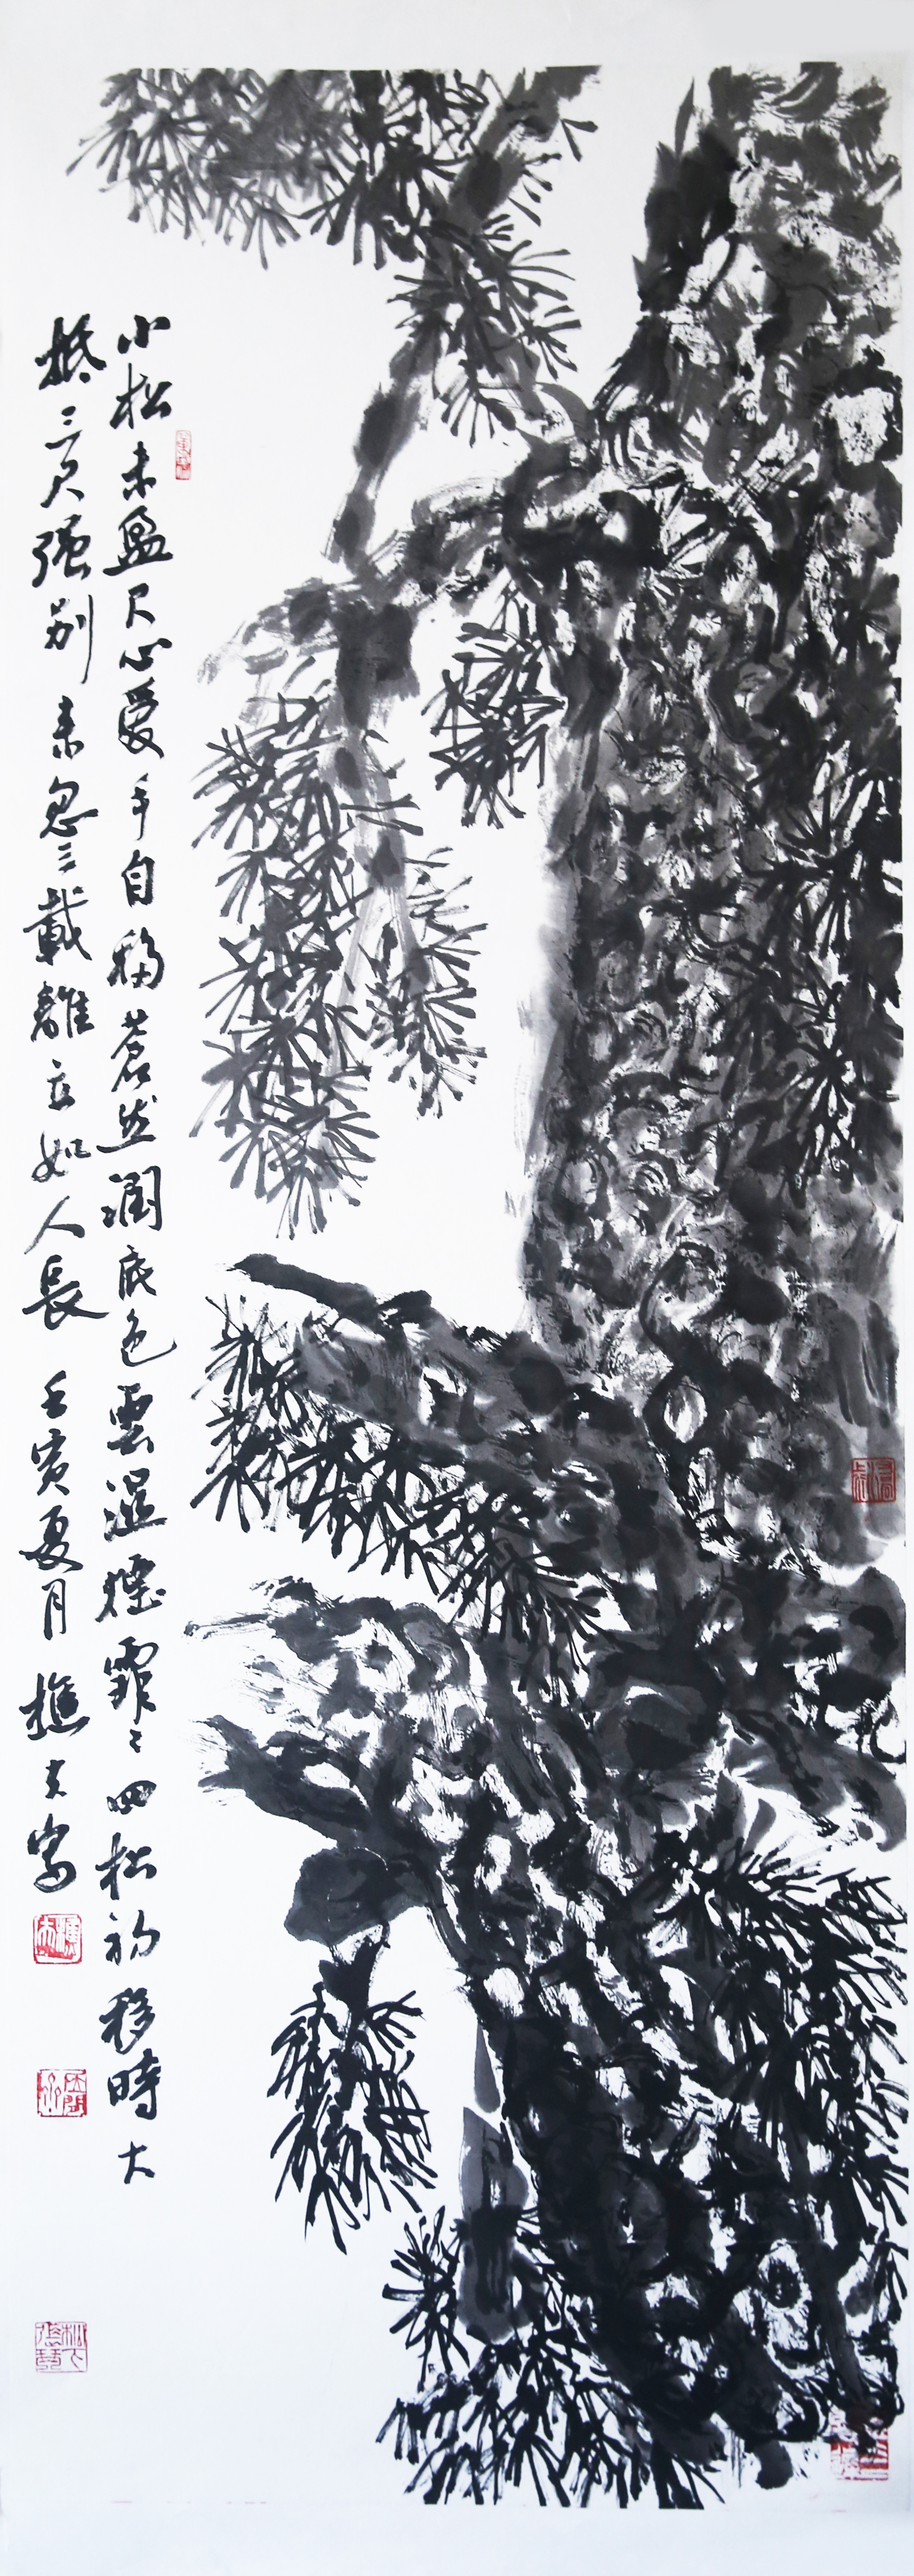 小松未盈尺心愛手自移蒼然澗底色雲濕煙霏霏四松初移時大
抵三尺強別來忽三載離立如人長 壬寅夏月 樵夫寫